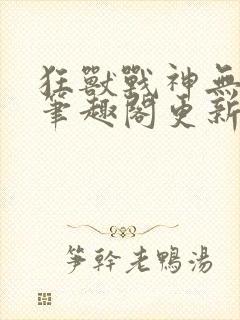 狂獸戰神無
筆趣閣更新
笋幹老鴨湯